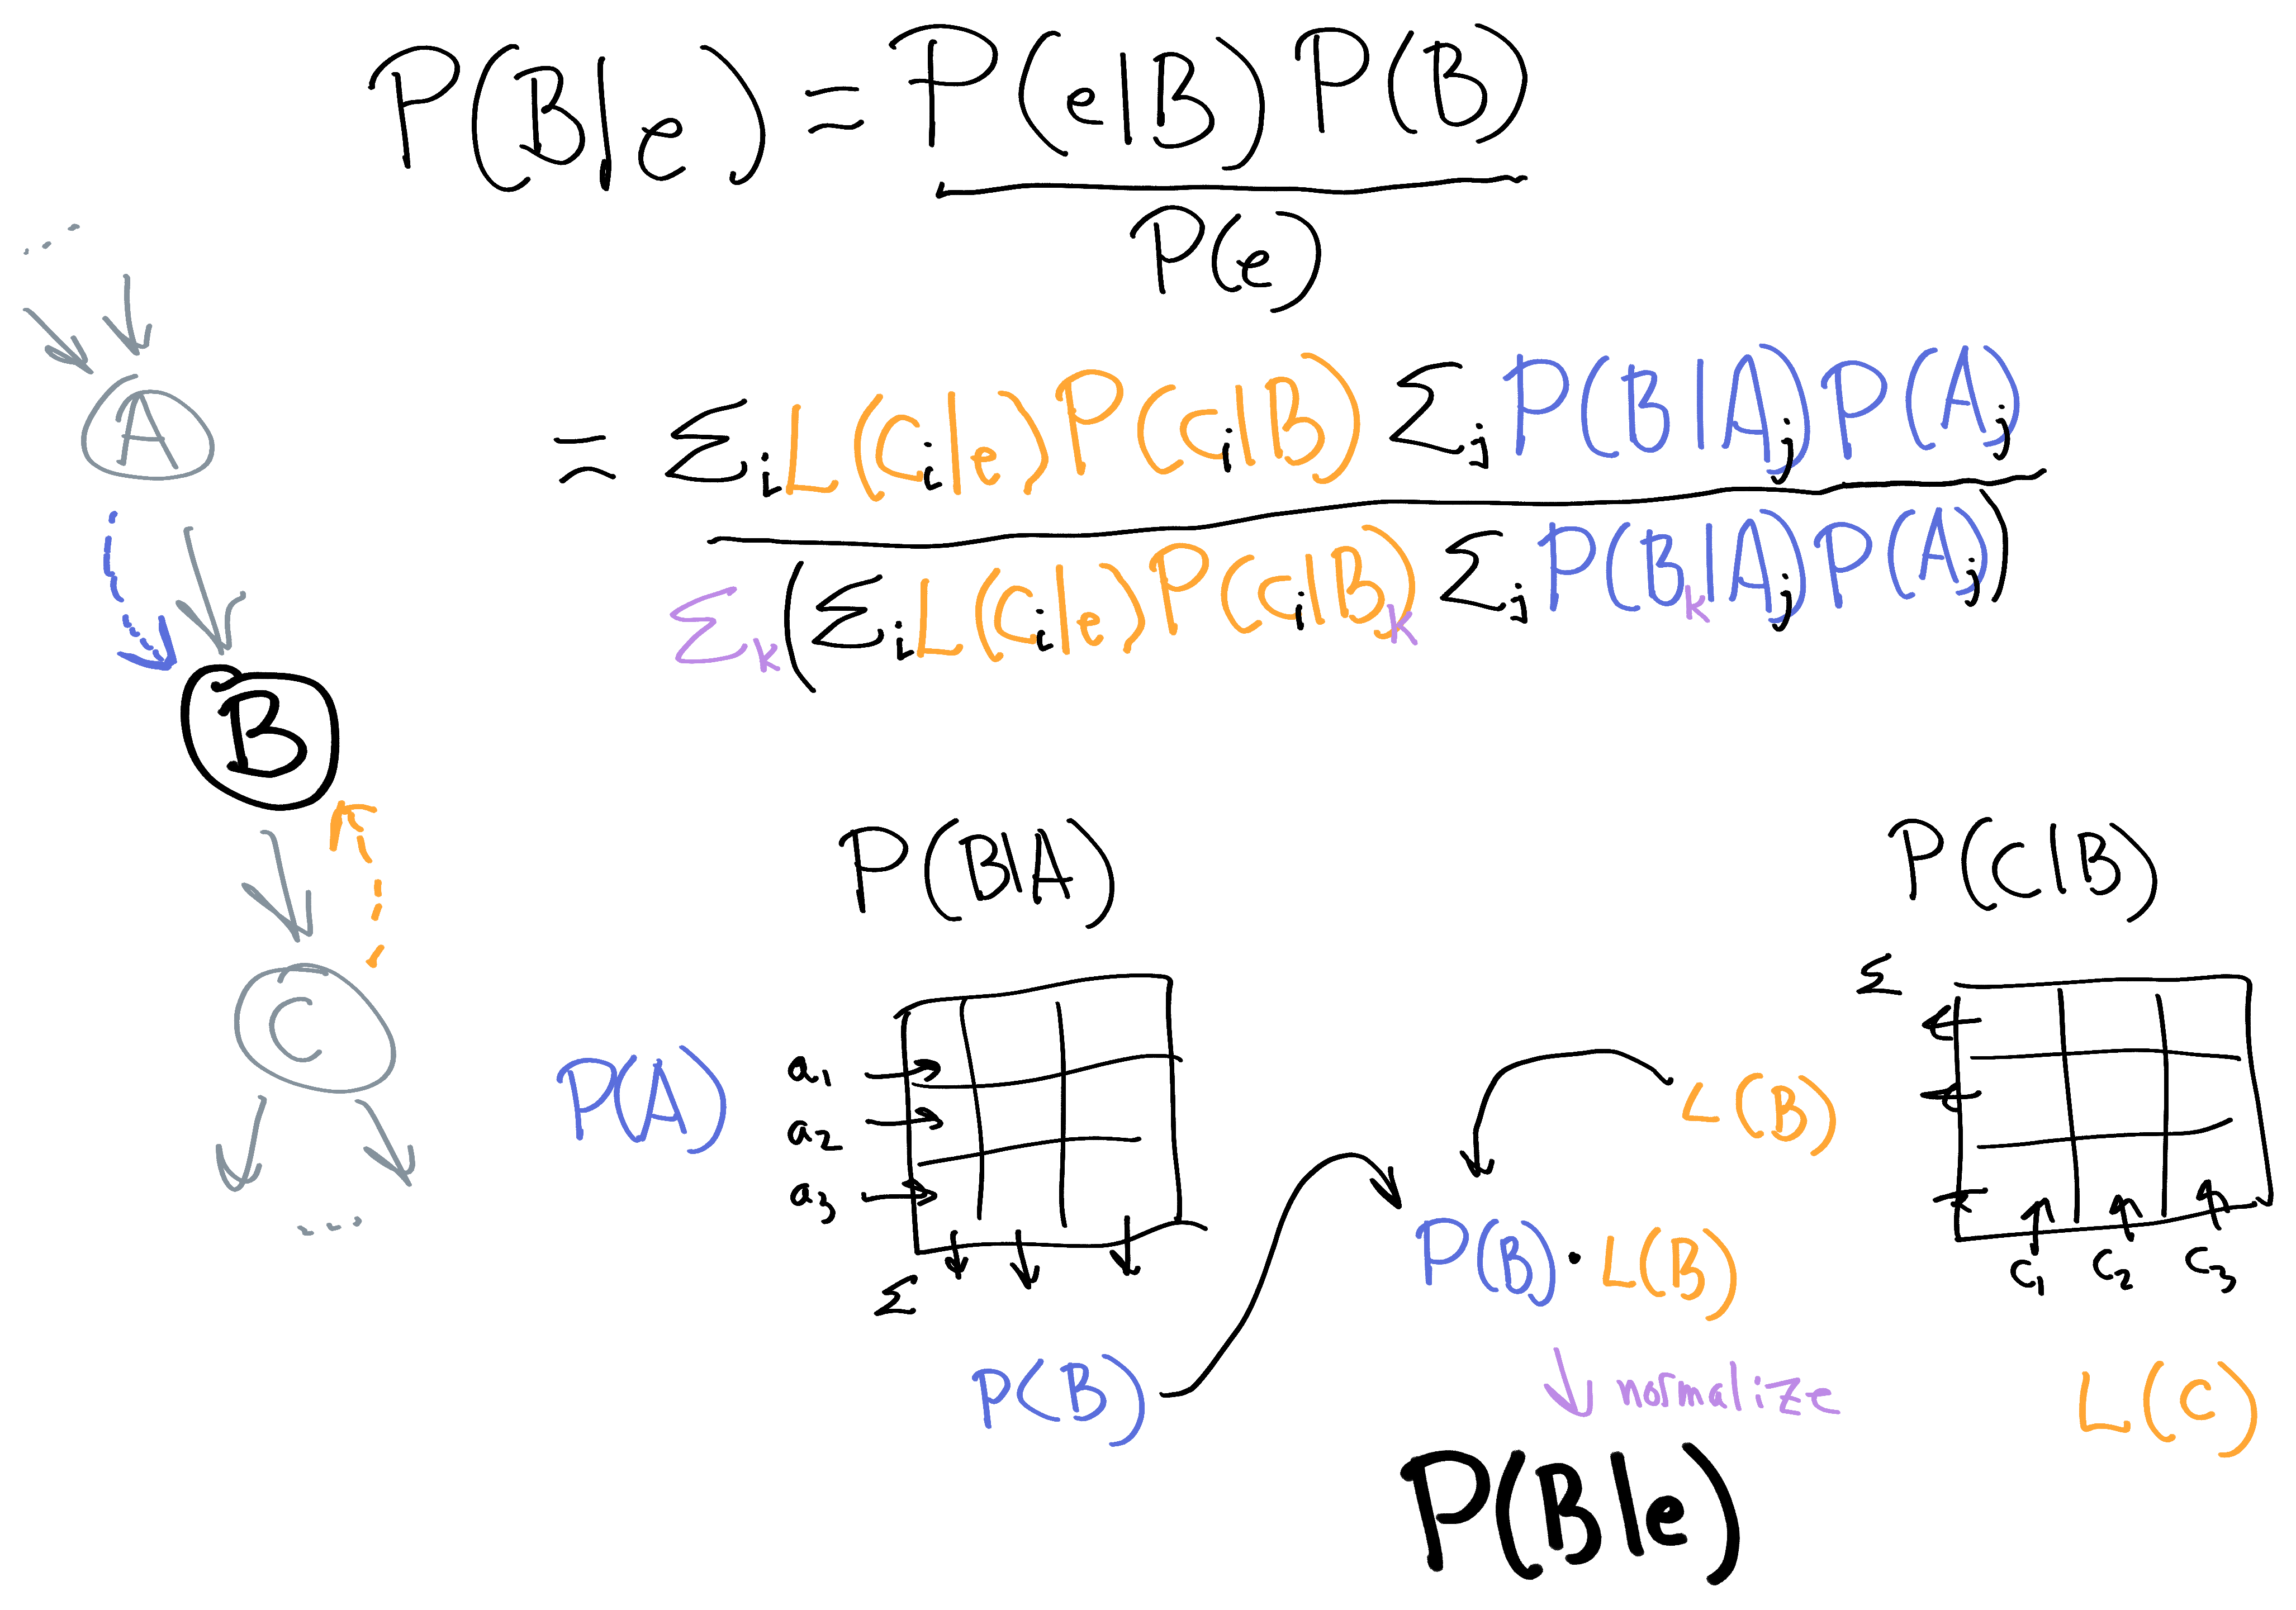 P(B|e) = P(e|B) P(B)
P(e)
A
= Σi L(ci|e) P(ci|B) Σj P(B|Aj) P(Aj)
Σk (Σi L(ci|e) P(ci|Bk) Σj P(Bk|Aj) P(Aj))
B
P(B|A)
P(C|B)
C
Σ
P(A)
a1
a2
a3
L(B)
P(B) · L(B)
c1 c2 c3
Σ
P(B)
normalize
L(C)
P(B|e)